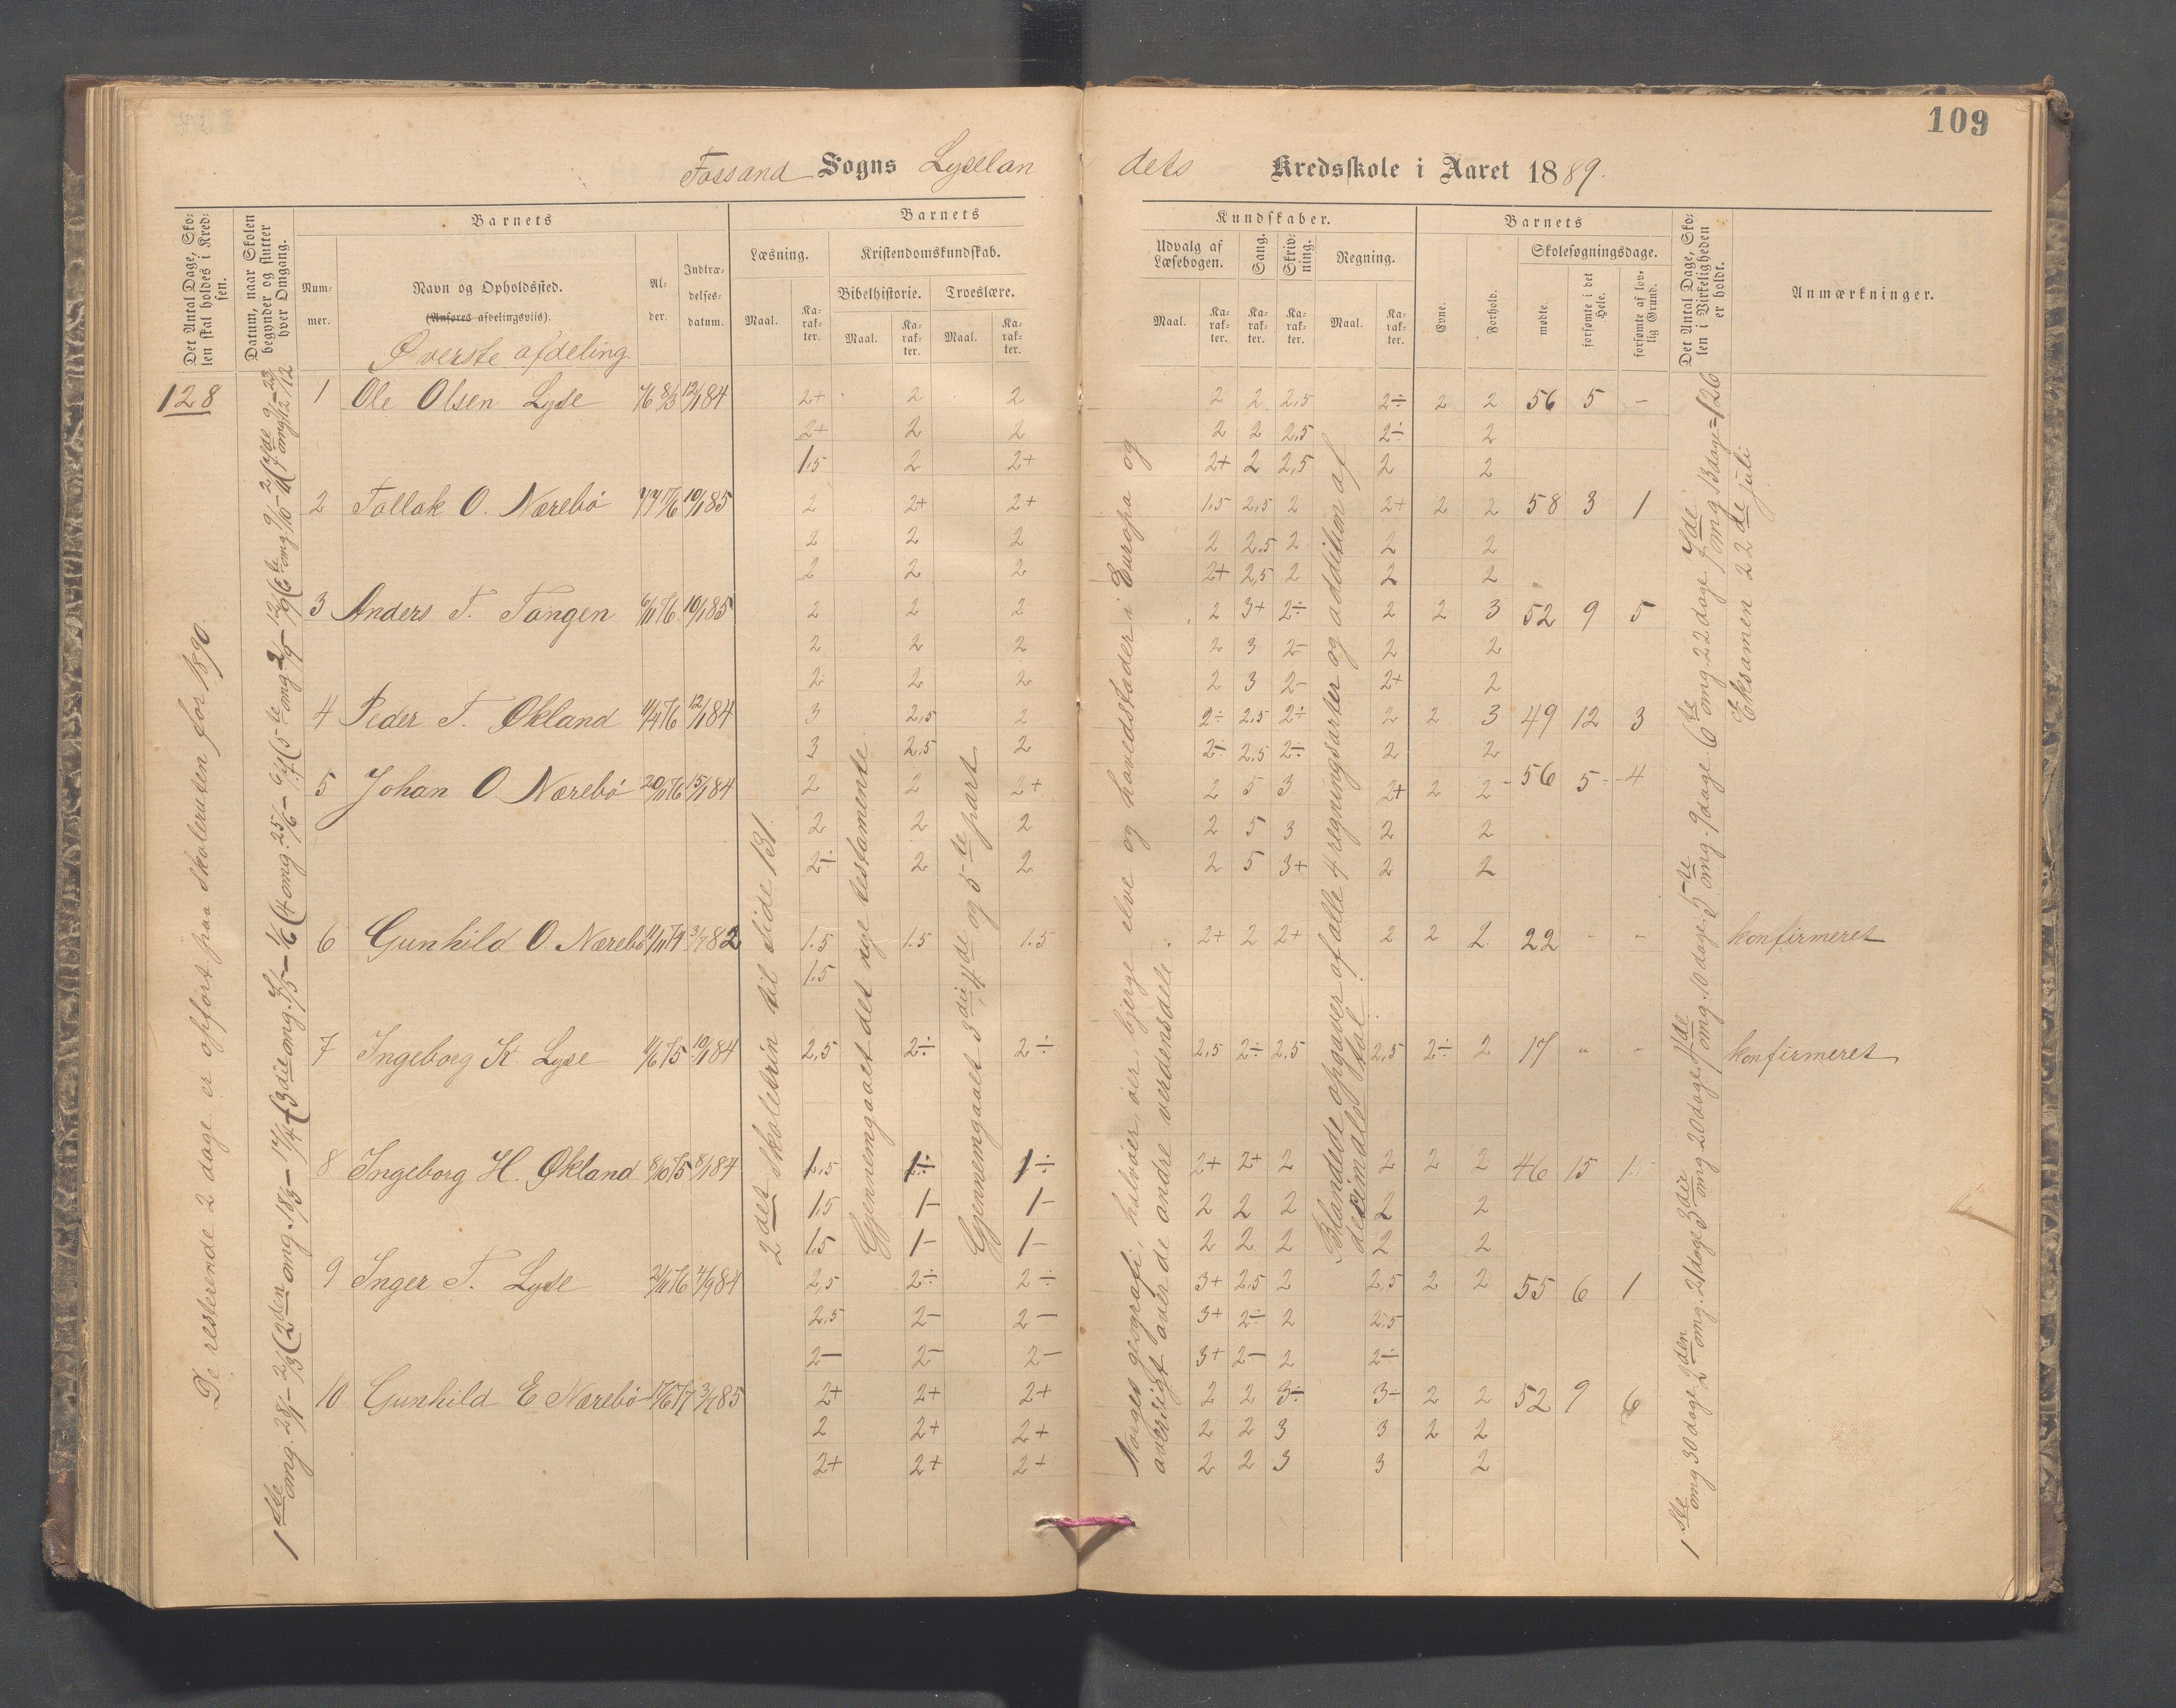 109
Fossand Sogns Lyselan
dets Kredsskole i Aaret 1889.
Det Antal Dage, Sko-
len skal holdes i Kred-
sen.
Datum, naar Skolen
begynder og slutter
hver Omgang.
Barnets
Num-
mer.
Navn og Opholdssted.
(Anføres afdelingsvis).
Øverste afdeling.
Al-
der.
Indtræ-
delses-
datum.
Barnets
Læsning.
Maal.
Ka-
rak-
ter.
Kristendomskundskab.
Bibelhistorie.
Maal.
Ka-
rak-
ter.
Troeslære.
Maal.
Ka-
rak-
ter.
Kundskaber.
Udvalg af
Læsebogen.
Maal.
Ka-
rak-
ter.
Sang.
Ka-
rak-
ter.
Skriv-
ning.
Ka-
rak-
ter.
Regning.
Maal.
Ka-
rak-
ter.
Barnets
Evne.
Forhold.
Skolesøgningsdage.
mødte.
forsømte i det
Hele.
forsømte af lov-
lig Grund.
Det Antal Dage, Sko-
len i Virkeligheden
er holdt.
Anmærkninger.
128
De resterende 2 dage er opført paa skoleruten for 1890.
1ste omg. 28/1 – 2/3 (2den omg. 18/3 – 17/4 (3die omg. 7/5 – 1/6 (4 omg. 25/6 – 6/7 (5te omg. 2/9 – 12/9 (6te omg.
2det Skoletrin til side 131.
Gjennemgaaet det nye testamente
Gjennemgaaet 3die, 4de og 5te part
Norges geografi, halvøer, øer, bjerge elve og hovedstæder i Europa og
oversigt over de andre verdensdele.
Blandede opgaver af alle 4 regningsarter og addition af
decimaltal.
1ste omg 30 dage 2den omg. 21 dage 3die omg 20 dage 4de omg. 10 dage, 5te omg. 9 dage. 6te omg. 22 dage. 7de omg 13 dage = 126
Eksamen 22de juli
1 Ole Olsen Lyse 7/6 8/3 12/1 84 2+ 2 2 2 2 2,5 2÷ 2 2 56 5 –
2+ 2 2 2 2 2,5 2÷ 2
1,5 2 2+ 2+ 2 2,5 2 2
2 Tollak O. Nærebø 10/1 85 2 2+ 2+ 1,5 2,5 2 2+ 2 2 58 3 1
2 2 2 2 2,5 2 2 2
2 2 2 2+ 2,5 2 2 2
3 Anders T. Tangen 6/11 76 10/1 85 2 2 2 2 3+ 2÷ 2 2 3 52 9 5
2 2 2 2 3 2– 2 2
2 2 2 2 3 2– 2+ 2
4 Peder T. Økland 11/4 76 12/1 84 3 2,5 2 2÷ 2,5 2÷ 2 2 3 49 12 3
3 2,5 2 2÷ 2,5 2÷ 2 2
5 Johan O Nærebø 20/11 76 15/1 84 2 2 2+ 2 5 3 2+ 2 2 56 5 4
2 2 2 2 5 3 2 2
2÷ 2 2 2 5 3+ 2 2
6 Gunhild O. Nærebø 11/11 74 3/7 82 1.5 1.5 1.5 2+ 2 2+ 2 2 2 22 – – konfirmeret
1.5
7 Ingeborg K. Lyse 1/6 75 10/1 84 2,5 2÷ 2÷ 2,5 2÷ 2,5 2,5 2÷ 2 17 " – konfirmeret
8 Ingeborg H. Økland 8/10 75 8/1 84 1,5 1÷ 1÷ 2+ 2+ 2 2 2 2 46 15 15
1,5 1– 1– 2 2 2 2 2
1,5 1– 1– 2 2 2 2 2
9 Inger T. Lyse 2/11 76 4/9 84 2,5 2÷ 2÷ 3+ 2,5 2 2,5 2 2 55 6 1
2,5 2– 2– 3+ 2÷ 2 2,5
2– 2– 2– 3+ 2– 2 2÷
10 Gunhild E Nærebø 17/6 77 3/7 85 2+ 2+ 2+ 2 2 3÷ 3÷ 2 2 52 9 6
2 2+ 2+ 2 2 3 3 2 2
2+ 2+ 2+ 2 2 3 3 2